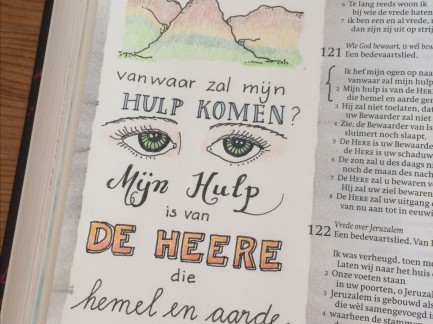 vanwaar zal mijn
HULP KOMEN?
Mijn Hulp
is van
DE HEERE
die
hemel en aarde
6 Te lang reeds woon ik
bij wie de vrede haten
7 ik ben een en al vrede,
dan zijn zij uit op strijd
121 Wie God bewaart, is wél bew
Een bedevaartslied.
Ik hef mijn ogen op naa
vanwaar zal mijn hulp
2 Mijn hulp is van de HERE
die hemel en aarde ge
3 Hij zal niet toelaten, dat
uw Bewaarder zal niet
4 Zie, de Bewaarder van Is
sluimert noch slaapt.
5 De HERE is uw Bewaarde
de HERE is uw schaduw
6 De zon zal u des daags ni
noch de maan des nach
7 De HERE zal u bewaren v
Hij zal uw ziel bewaren
8 De HERE zal uw uitgang
van nu aan tot in eeuwi
122 Vrede over Jeruzalem
Een bedevaartslied. Van
Ik was verheugd, toen me
Laten wij naar het huis
2 Onze voeten staan
in uw poorten, o Jeruzal
3 Jeruzalem is gebouwd als
die wèl samengevoegd is
4 waarheen de stammen